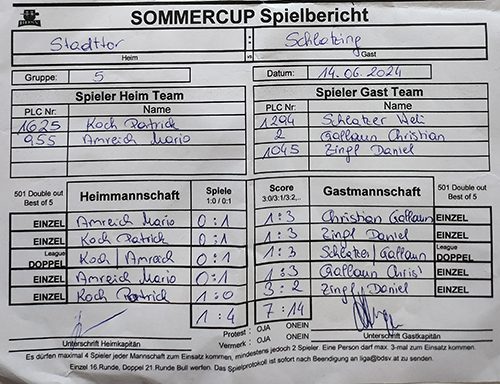 SOMMERCUP Spielbericht
Stadttor : Schlatzing
Heim vs Gast
Gruppe: 5 Datum: 14.06.2024
Spieler Heim Team Spieler Gast Team
PLC Nr: Name PLC Nr: Name
1625 Koch Patrick 1294 Schlatzer Heli
955 Amreich Mario 2 Gallaun Christian
1045 Zingl Daniel
501 Double out Best of 5 Heimmannschaft Spiele 1:0 / 0:1 Score 3:0/3:1/3:2,.. Gastmannschaft 501 Double out Best of 5
EINZEL Amreich Mario 0:1 1:3 Christian Gallaun EINZEL
EINZEL Koch Patrick 0:1 1:3 Zingl Daniel EINZEL
League DOPPEL Koch / Amreich 0:1 1:3 Schlatzer / Gallaun League DOPPEL
EINZEL Amreich Mario 0:1 1:3 Gallaun Christ EINZEL
EINZEL Koch Patrick 1:0 3:2 Zingl, Daniel EINZEL
1:4 7:14
Protest : OJA ONEIN
Unterschrift Heimkapitän Vermerk : OJA ONEIN Unterschrift Gastkapitän
Es dürfen maximal 4 Spieler jeder Mannschaft zum Einsatz kommen, mindestens jedoch 2 Spieler. Eine Person darf max. 3-mal zum Einsatz kommen.
Einzel 16.Runde, Doppel 21.Runde Bull werfen. Das Spielprotokoll ist sofort nach Beendigung an liga@bdsv.at zu senden.